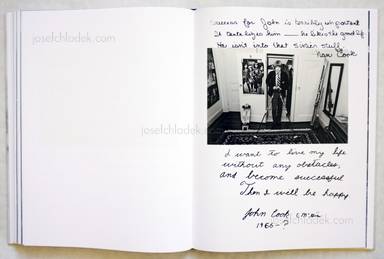 Success for John is terribly important
It tantalizes him — he likes the good life
He isn't into that sixties stuff.
Nan Cook
I want to live my life
without any obstacles,
and become successful
Then I will be happy
John Cook
1955-?
josefchladek.com
josefchladek.com
josefchladek.com